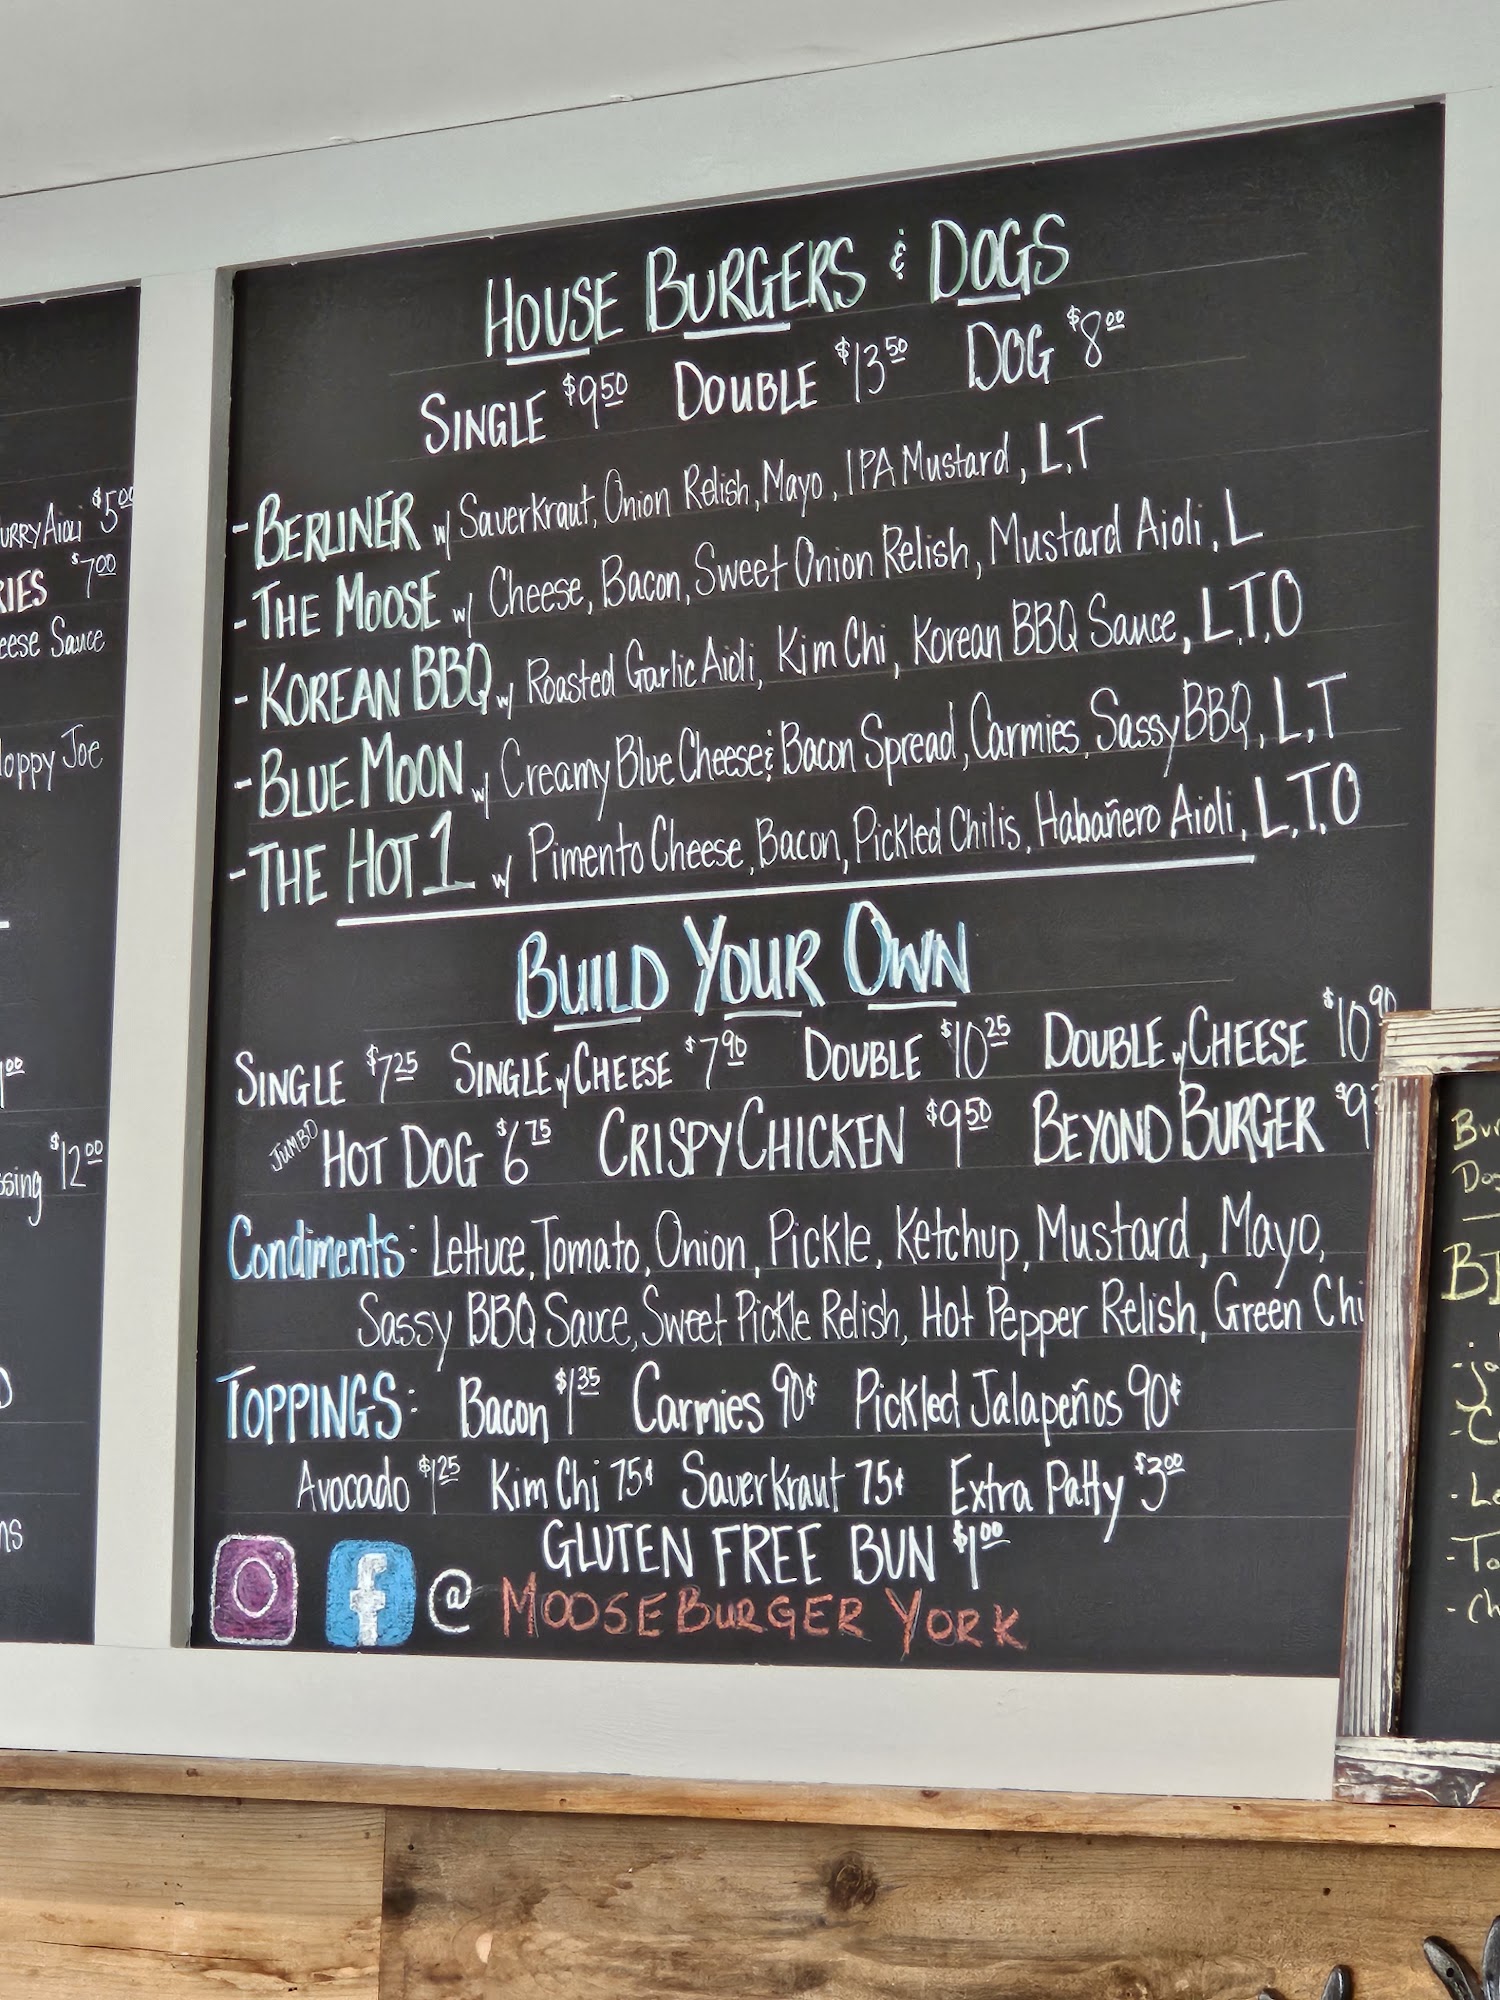 HOUSE BURGERS & DOGS
SINGLE $9.50 DOUBLE $13.50 DOG $8.00
- BERLINER w/ Sauerkraut, Onion Relish, Mayo, IPA Mustard, L,T
- THE MOOSE w/ Cheese, Bacon, Sweet Onion Relish, Mustard Aioli, L
- KOREAN BBQ w/ Roasted Garlic Aioli, Kim Chi, Korean BBQ Sauce, L,T,O
- BLUE MOON w/ Creamy Blue Cheese & Bacon Spread, Carmies, Sassy BBQ, L,T
- THE HOT 1 w/ Pimento Cheese, Bacon, Pickled Chilis, Habañero Aioli, L,T,O
BUILD YOUR OWN
SINGLE $7.25 SINGLE w/ CHEESE $7.90 DOUBLE $10.25 DOUBLE w/ CHEESE $10.90
JUMBO HOT DOG $6.75 CRISPY CHICKEN $9.50 BEYOND BURGER
Condiments: Lettuce, Tomato, Onion, Pickle, Ketchup, Mustard, Mayo,
Sassy BBQ Sauce, Sweet Pickle Relish, Hot Pepper Relish, Green Chi
TOPPINGS: Bacon $1.35 Carmies 90¢ Pickled Jalapeños 90¢
Avocado $1.25 Kim Chi 75¢ Sauerkraut 75¢ Extra Patty $3.00
GLUTEN FREE BUN $1.00
f @ MOOSEBURGERYORK
URRY AIOLI $5.00
RIES $7.00
eese Sauce
loppy Joe
ssing $12.00